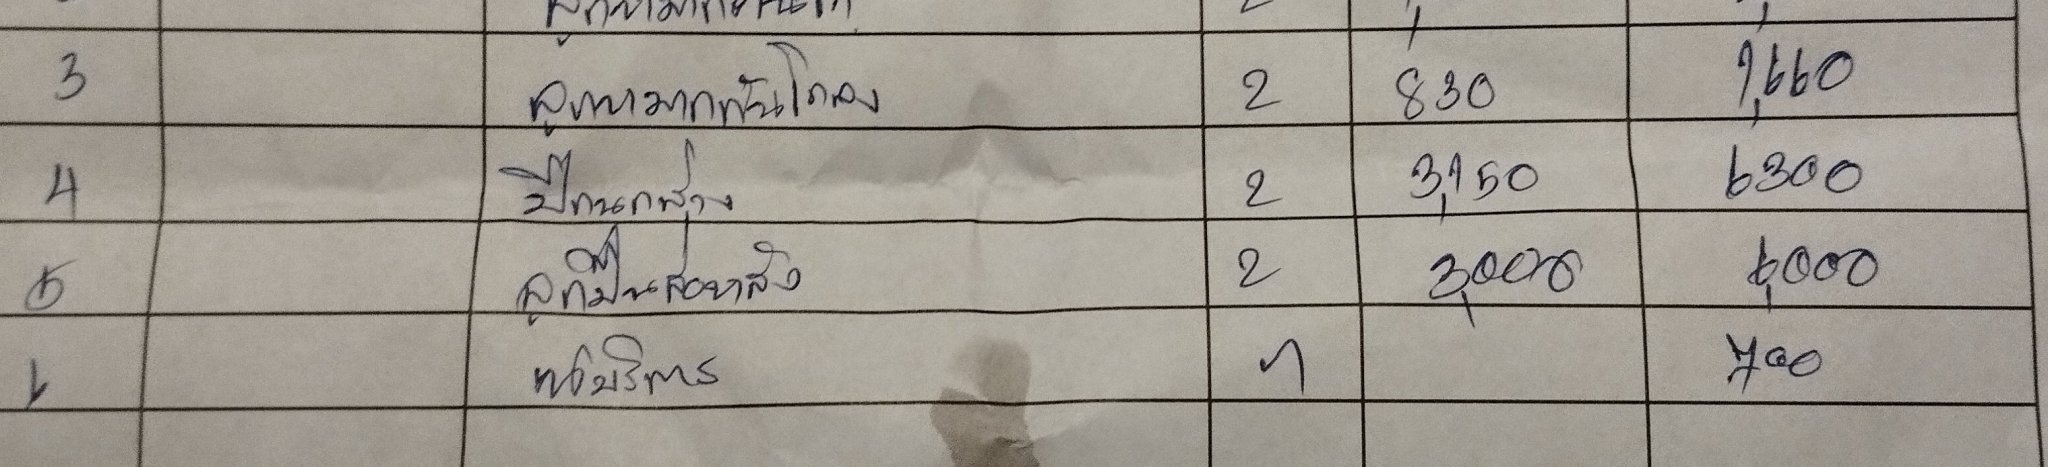 3 ลูกหมากคันโยง 2 830 1,660
4 ปีกนกล่าง 2 3,150 6300
5 ลูกปืน 2 3,000 6,000
6 ค่าบริการ 1 700